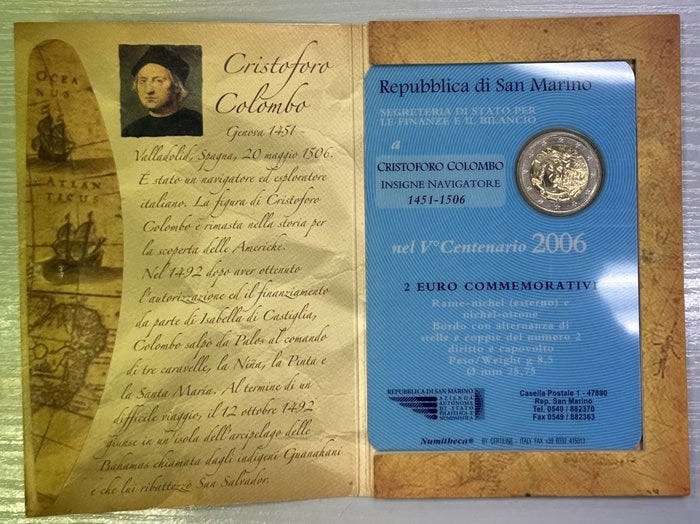 OCEA
NUS
ATLAN
TICUS
Cristoforo
Colombo
Genova 1451 -
Valladolid, Spagna, 20 maggio 1506.
È stato un navigatore ed esploratore
italiano. La figura di Cristoforo
Colombo è rimasta nella storia per
la scoperta delle Americhe.
Nel 1492 dopo aver ottenuto
l'autorizzazione ed il finanziamento
da parte di Isabella di Castiglia,
Colombo salpò da Palos al comando
di tre caravelle, la Niña, la Pinta e
la Santa Maria. Al termine di un
difficile viaggio, il 12 ottobre 1492
giunse in un'isola dell'arcipelago delle
Bahamas chiamata dagli indigeni Guanahani
e che lui ribattezzò San Salvador.
Repubblica di San Marino
SEGRETERIA DI STATO PER
LE FINANZE E IL BILANCIO
a
CRISTOFORO COLOMBO
INSIGNE NAVIGATORE
1451-1506
nel V° Centenario 2006
2 EURO COMMEMORATIVI
Rame-nichel (esterno) e
nichel-ottone
Bordo con alternanza di
stelle e coppie del numero 2
diritto e capovolto
Peso/Weight g 8,5
Ø mm 25,75
REPUBBLICA DI SAN MARINO
AZIENDA
AUTONOMA
DI STATO
FILATELICA E
NUMISMATICA
Casella Postale 1 - 47890
Rep. San Marino
Tel. 0549 / 882370
Fax 0549 / 882363
Numitheca® BY CERTILINE - ITALY FAX +39 0332 415013